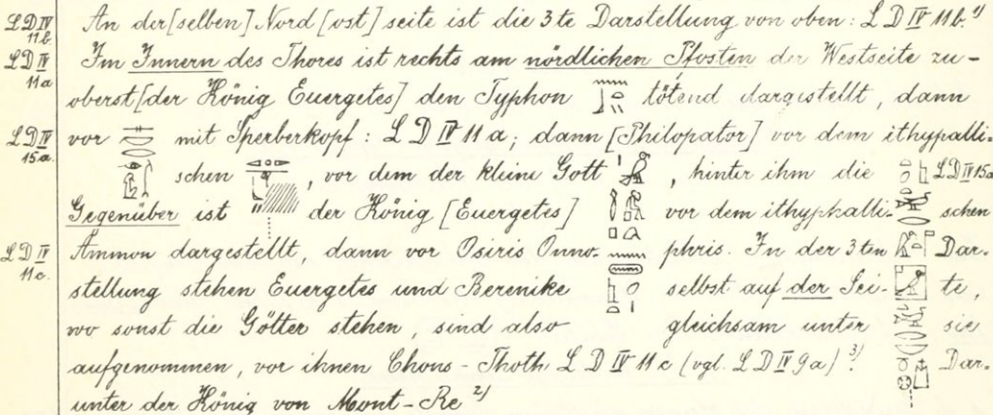 An der [selben] Nord [ost] seite ist die 3te Darstellung von oben: L D IV 11 b. 1)
L D IV 11 b.
Im Innern des Thores ist rechts am nördlichen Pfosten der Westseite zu-
L D IV 11 a
oberst [der König Euergetes] den Typhon tötend dargestellt, dann
vor mit Sperberkopf: L D IV 11 a; dann [Philopator] vor dem ithyphalli-
L D IV 15 a.
schen , vor dem der kleine Gott , hinter ihm die L D IV 15 a
Gegenüber ist der König [Euergetes] vor dem ithyphalli- schen
Ammon dargestellt, dann vor Osiris Onno- phris. In der 3ten Dar-
L D IV 11 c.
stellung stehen Euergetes und Berenike selbst auf der Sei- te,
wo sonst die Götter stehen, sind also gleichsam unter sie
aufgenommen, vor ihnen Chons-Thoth L D IV 11 c (vgl. L D IV 9 a) 3)! Dar-
unter der König von Mont-Re 2)